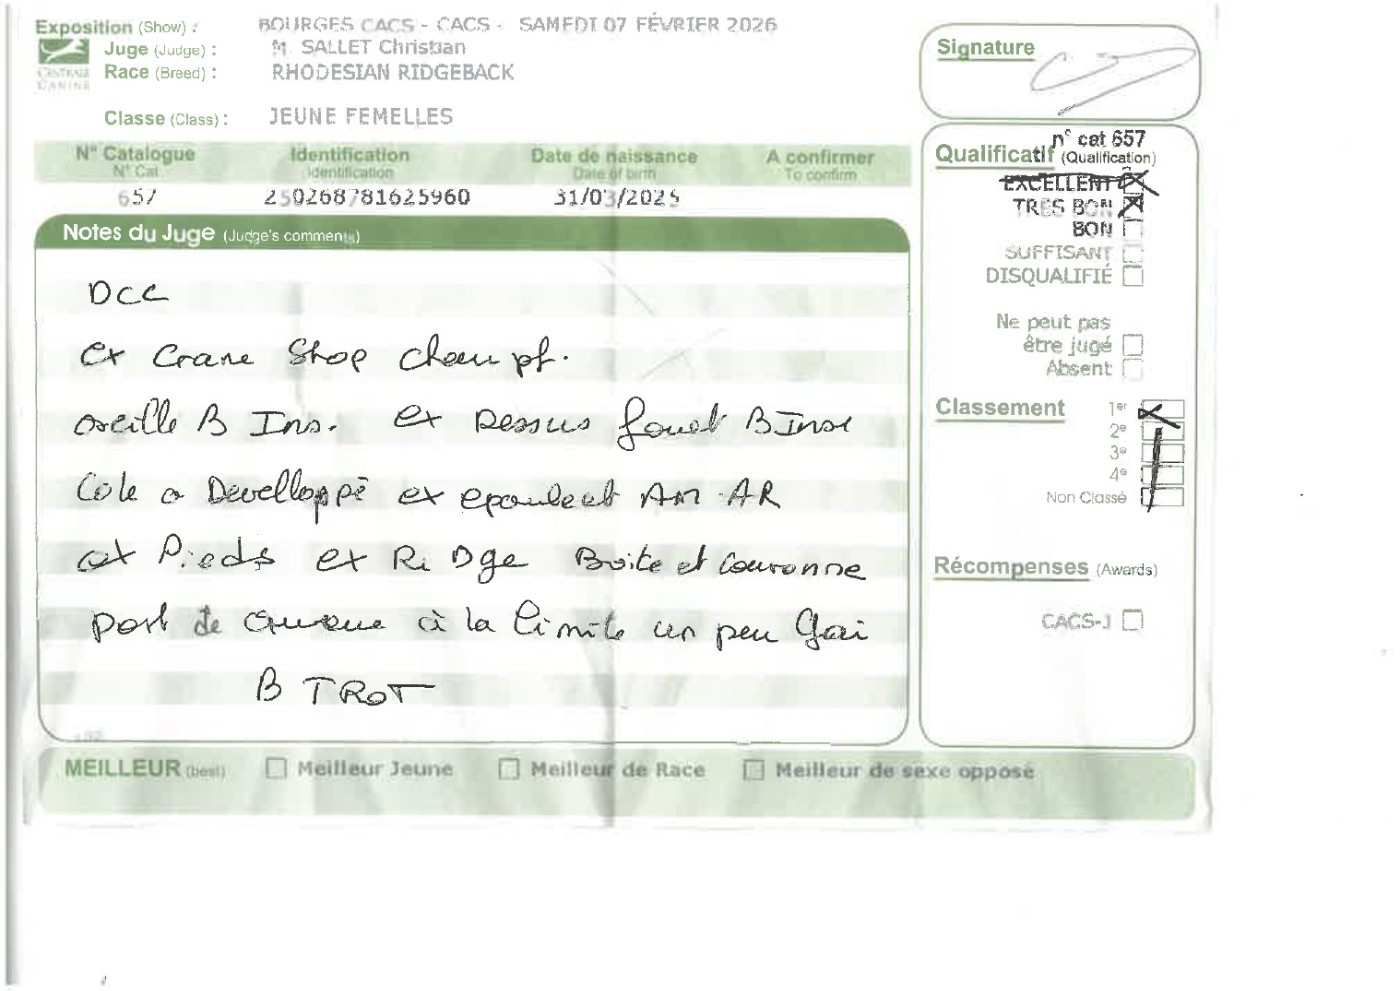 Exposition (Show) : BOURGES CACS - CACS - SAMEDI 07 FÉVRIER 2026
Juge (Judge) : M. SALLET Christian
Race (Breed) : RHODESIAN RIDGEBACK
CENTRALE CANINE
Classe (Class) : JEUNE FEMELLES
N° Catalogue Identification Date de naissance A confirmer
N° Cat Identification Date of birth To confirm
657 250268781625960 31/03/2025
Notes du Juge (Judge's comments)
DCC
ex Crane Stop chanpf.
oreille B Ins. ex Dessus fouet B Inse
Cote a Developpé ex epaule et AM AR
ex Pieds ex RiDge Boite et Couronne
port de queue à la limite un peu Gai
B TROT
Signature
n° cat 657
Qualificatif (Qualification)
EXCELLENT
TRES BON
BON
SUFFISANT
DISQUALIFIÉ
Ne peut pas
être jugé
Absent
Classement
1er
2e
3e
4e
Non Classé
Récompenses (Awards)
CACS-J
MEILLEUR (best) Meilleur Jeune Meilleur de Race Meilleur de sexe opposé